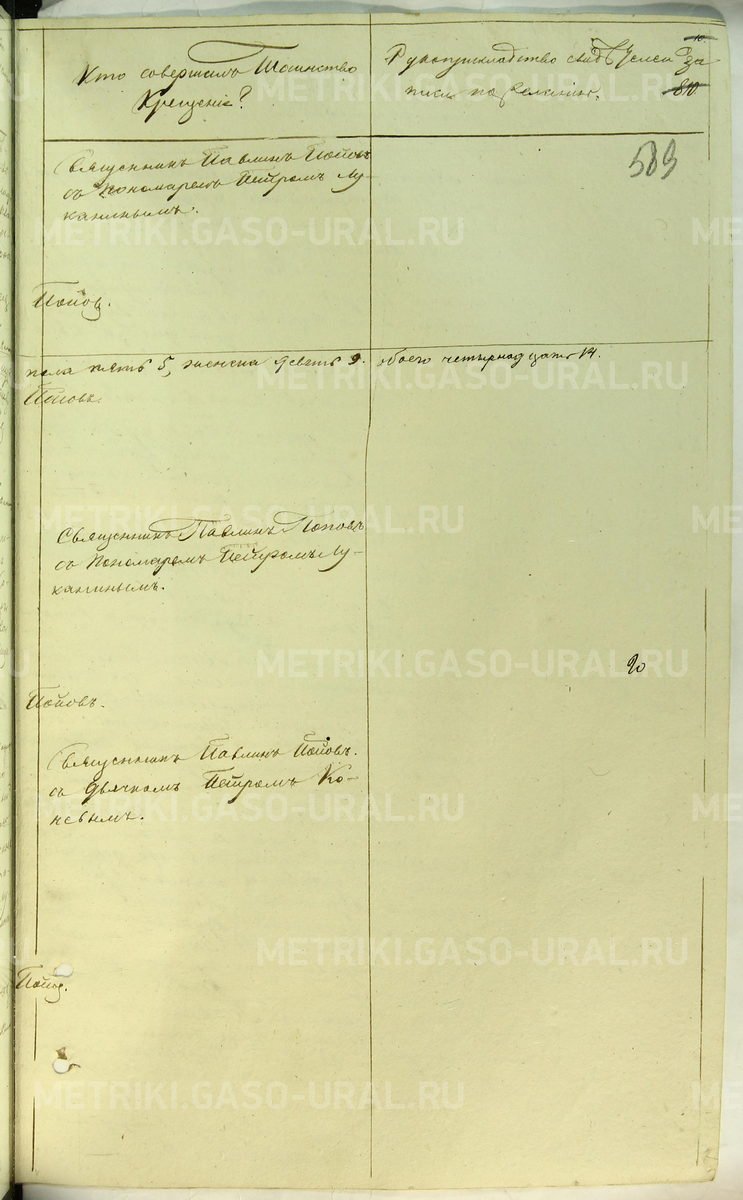 Кто совершалъ Таинство
Крещенія?
Рукоприкладство свидѣтелей за
пиСи по желанію.
10.
810
589
Священникъ Павлинъ Поповъ
съ Пономаремъ Петромъ Лу-
канинымъ.
Попов.
пола пять 5, женска девять 9. обоего четырнадцать 14.
Поповъ.
Священникъ Павлинъ Поповъ
съ Пономаремъ Петромъ Лу-
канинымъ.
20
Поповъ.
Священникъ Павлинъ Поповъ.
съ Дьячкомъ Петромъ Ко-
невымъ.
Попов.
METRIKI.GASO-URAL.RU